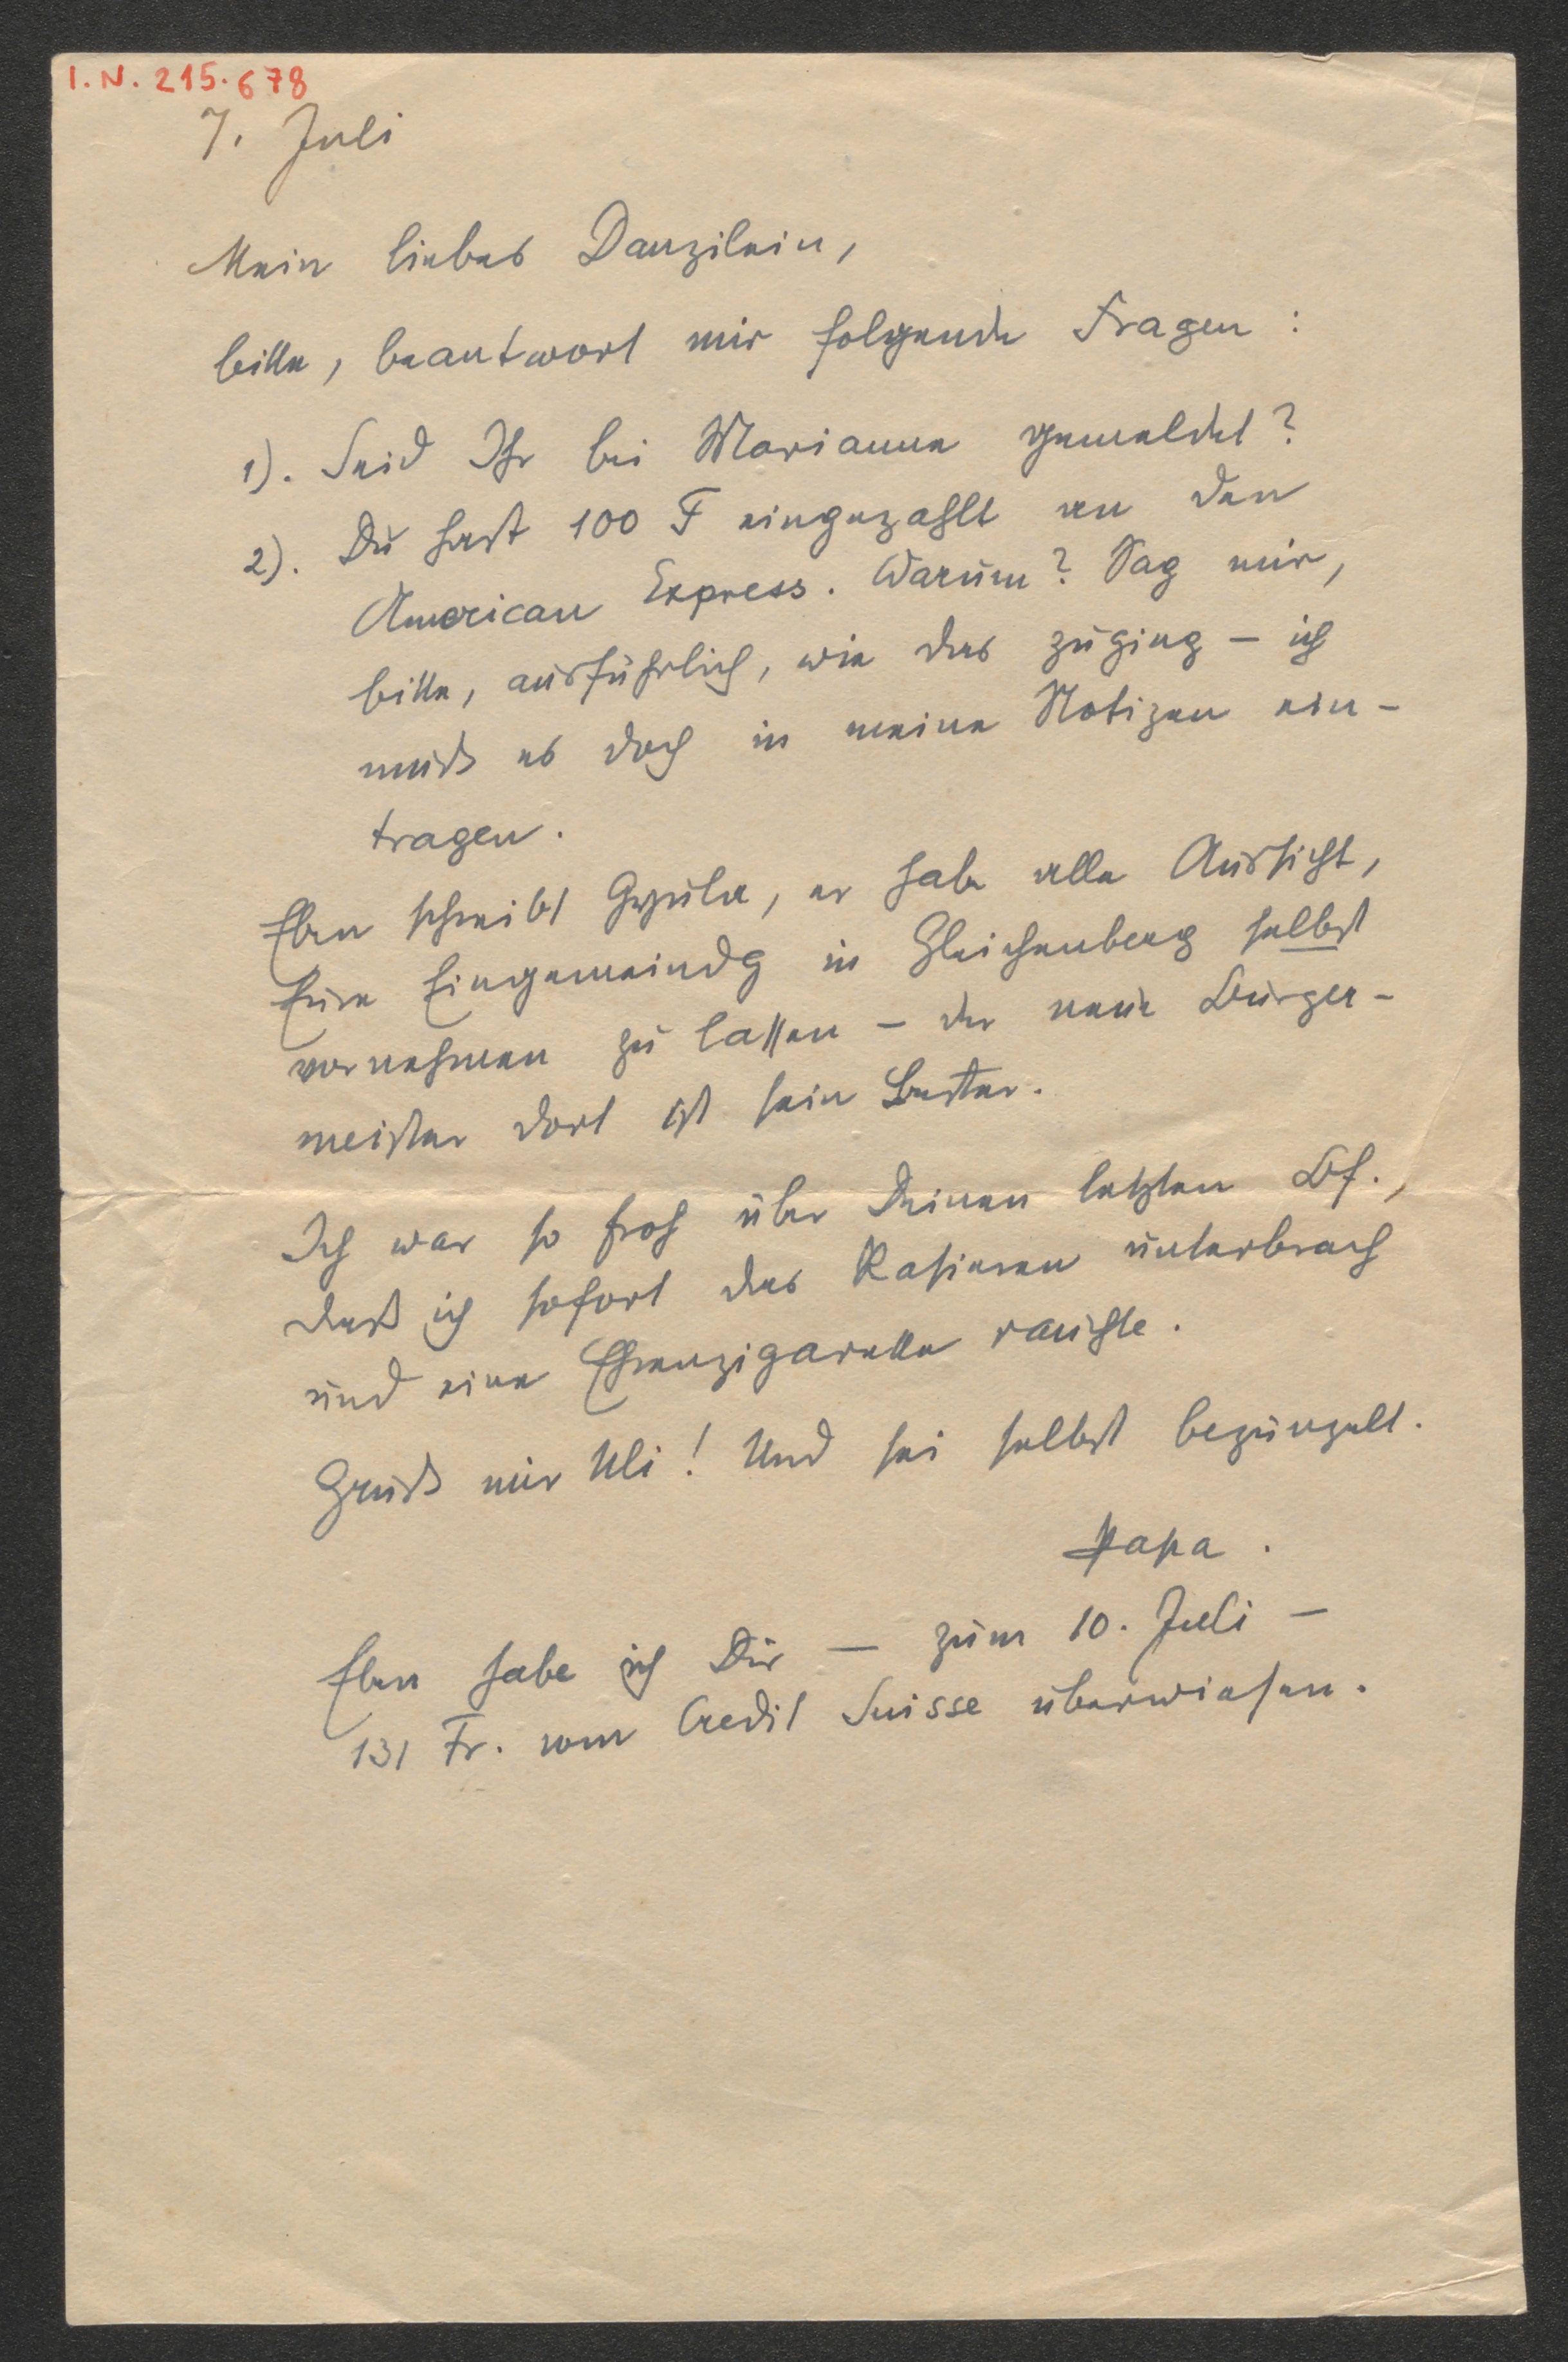 I.N. 215.678
7. Juli
Mein liebes Danzilein,
bitte, beantwort mir folgende Fragen:
1). Seid Ihr bei Marianne gemeldet?
2). Du hast 100 F eingezahlt an den
American Express. Warum? Sag mir,
bitte, ausführlich, wie das zuging – ich
muß es doch in meine Notizen ein-
tragen.
Eben schreibt Gyula, er habe alle Aussicht,
Eure Eingemeindg in Gleichenberg selbst
vornehmen zu lassen – der neue Bürger-
meister dort ist sein Bester.
Ich war so froh über Deinen letzten Bf.,
daß ich sofort das Rasieren unterbrach
und eine Ehrenzigarette rauchte.
Grüß mir Uli! Und sei selbst bezünzelt.
Papa.
Eben habe ich Dir – zum 10. Juli –
131 Fr. vom Credit Suisse überwiesen.